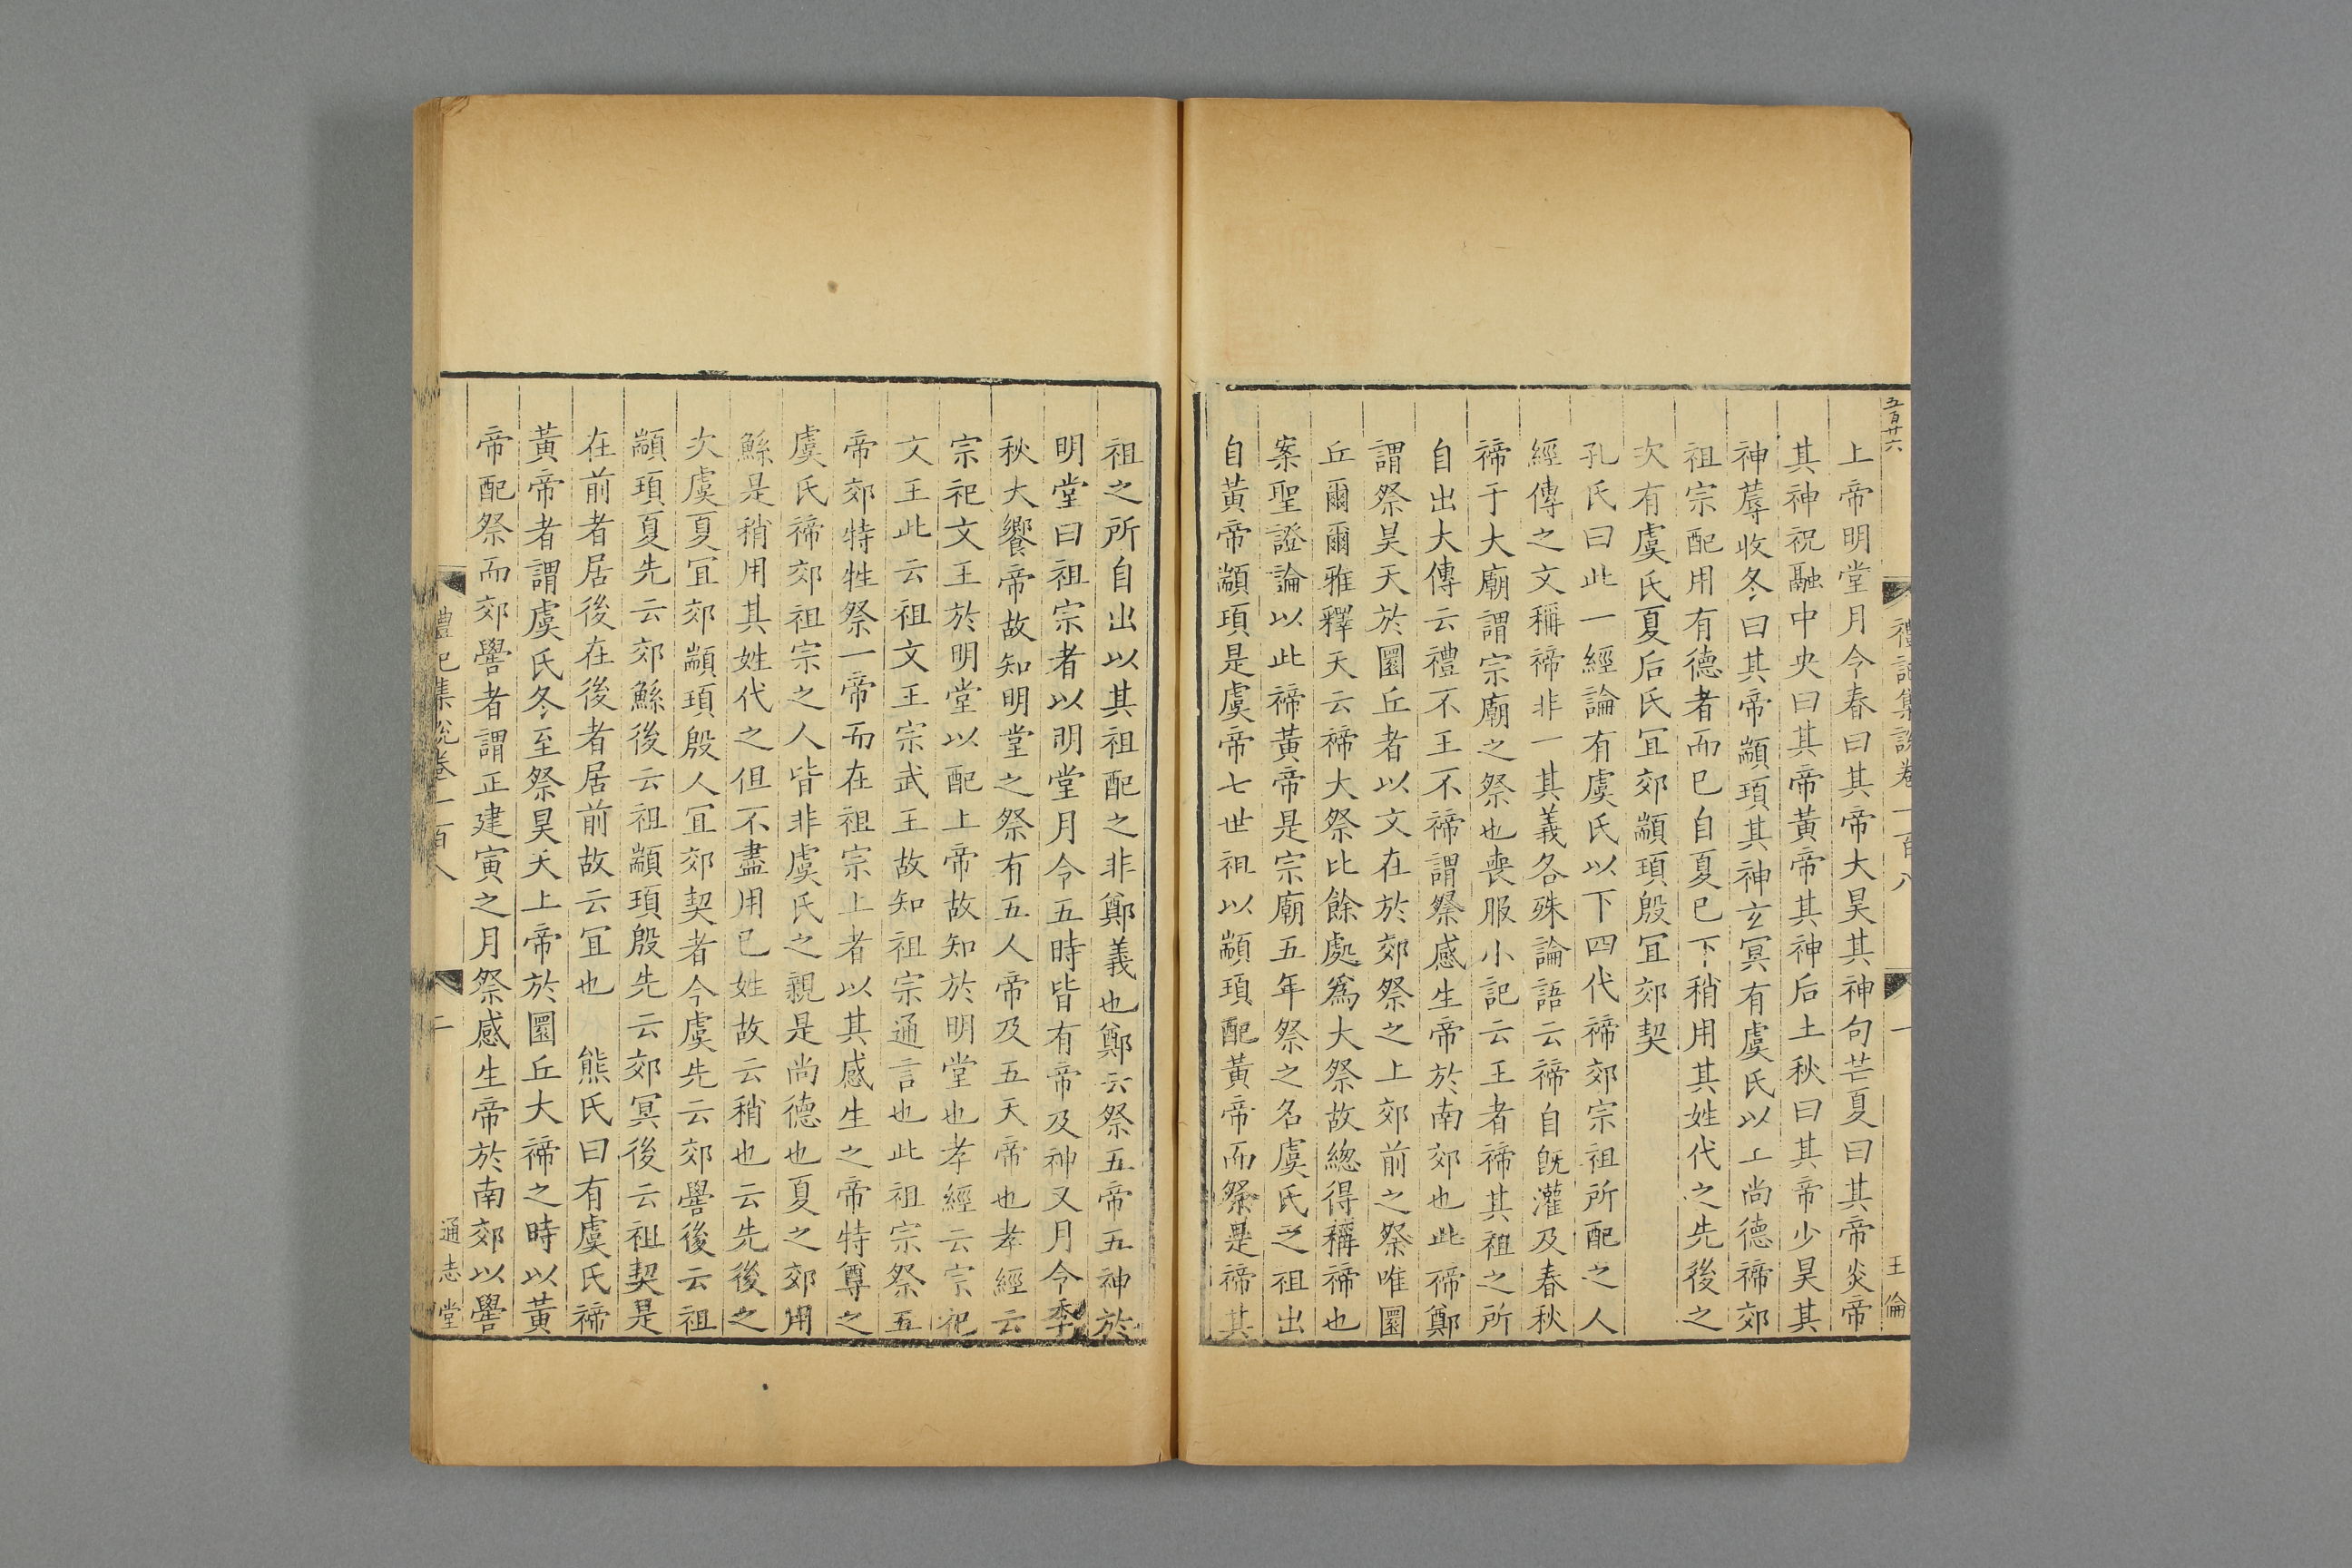 五百廿六
禮記集說卷一百八
一
王倫
上帝明堂月令春曰其帝大昊其神句芒夏曰其帝炎帝
其神祝融中央曰其帝黃帝其神后土秋曰其帝少昊其
神蓐收冬曰其帝顓頊其神玄冥有虞氏以上尚德禘郊
祖宗配用有德者而已自夏已下稍用其姓代之先後之
次有虞氏夏后氏宜郊顓頊殷宜郊契
孔氏曰此一經論有虞氏以下四代禘郊宗祖所配之人
經傳之文稱禘非一其義各殊論語云禘自既灌及春秋
禘于大廟謂宗廟之祭也喪服小記云王者禘其祖之所
自出大傳云禮不王不禘謂祭感生帝於南郊也此禘鄭
謂祭昊天於圜丘者以文在於郊祭之上郊前之祭唯圜
丘爾爾雅釋天云禘大祭比餘處爲大祭故總得稱禘也
案聖證論以此禘黃帝是宗廟五年祭之名虞氏之祖出
自黃帝顓頊是虞帝七世祖以顓頊配黃帝而祭是禘其
祖之所自出以其祖配之非鄭義也鄭云祭五帝五神於
明堂曰祖宗者以明堂月令五時皆有帝及神又月令季
秋大饗帝故知明堂之祭有五人帝及五天帝也孝經云
宗祀文王於明堂以配上帝故知於明堂也孝經云宗祀
文王此云祖文王宗武王故知祖宗通言也此祖宗祭五
帝郊特牲祭一帝而在祖宗上者以其感生之帝特尊之
虞氏禘郊祖宗之人皆非虞氏之親是尚德也夏之郊用
鯀是稍用其姓代之但不盡用已姓故云稍也云先後之
次虞夏宜郊顓頊殷人宜郊契者今虞先云郊嚳後云祖
顓頊夏先云郊鯀後云祖顓頊殷先云郊冥後云祖契是
在前者居後在後者居前故云宜也 熊氏曰有虞氏禘
黃帝者謂虞氏冬至祭昊天上帝於圜丘大禘之時以黃
帝配祭而郊嚳者謂正建寅之月祭感生帝於南郊以嚳
禮記集說卷一百八
二
通志堂